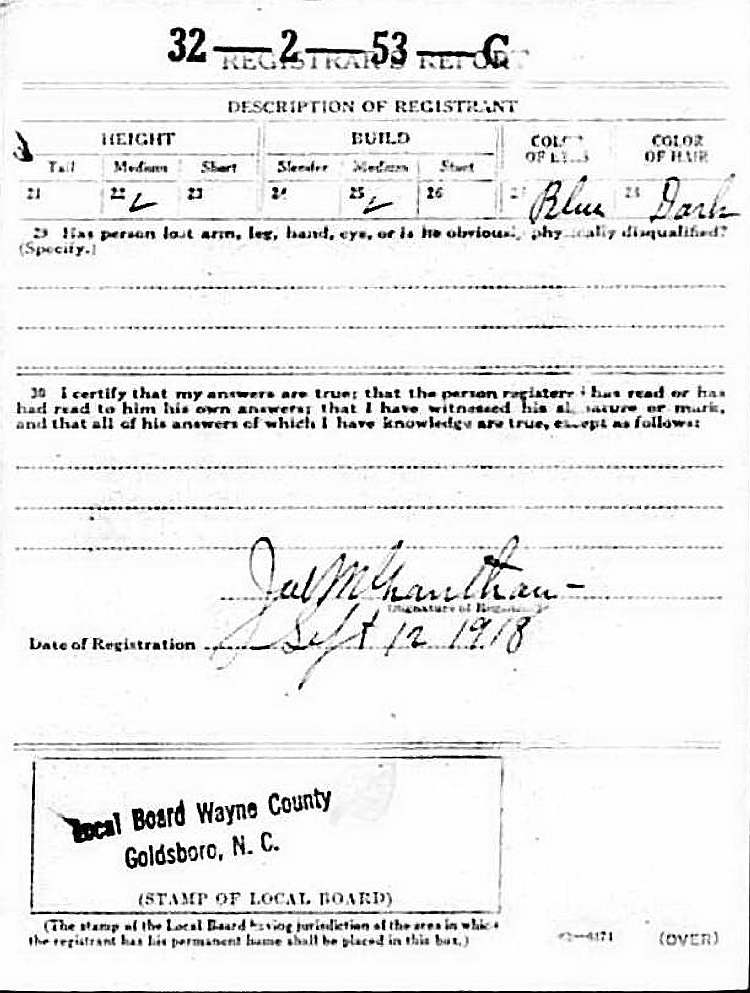 32—2—53—C
REGISTRAR'S REPORT
DESCRIPTION OF REGISTRANT
HEIGHT BUILD COLOR OF EYES COLOR OF HAIR
Tall Medium Short Slender Medium Stout
21 22 ✓ 23 24 25 ✓ 26 27 Blue 28 Dark
29 Has person lost arm, leg, hand, eye, or is he obviously physically disqualified?
(Specify.)
30 I certify that my answers are true; that the person registered has read or has
had read to him his own answers; that I have witnessed his signature or mark,
and that all of his answers of which I have knowledge are true, except as follows:
Joel M Granthan
(Signature of Registrar)
Date of Registration Sept 12 1918
Local Board Wayne County
Goldsboro, N. C.
(STAMP OF LOCAL BOARD)
(The stamp of the Local Board having jurisdiction of the area in which
the registrant has his permanent home shall be placed in this box.)
(OVER)